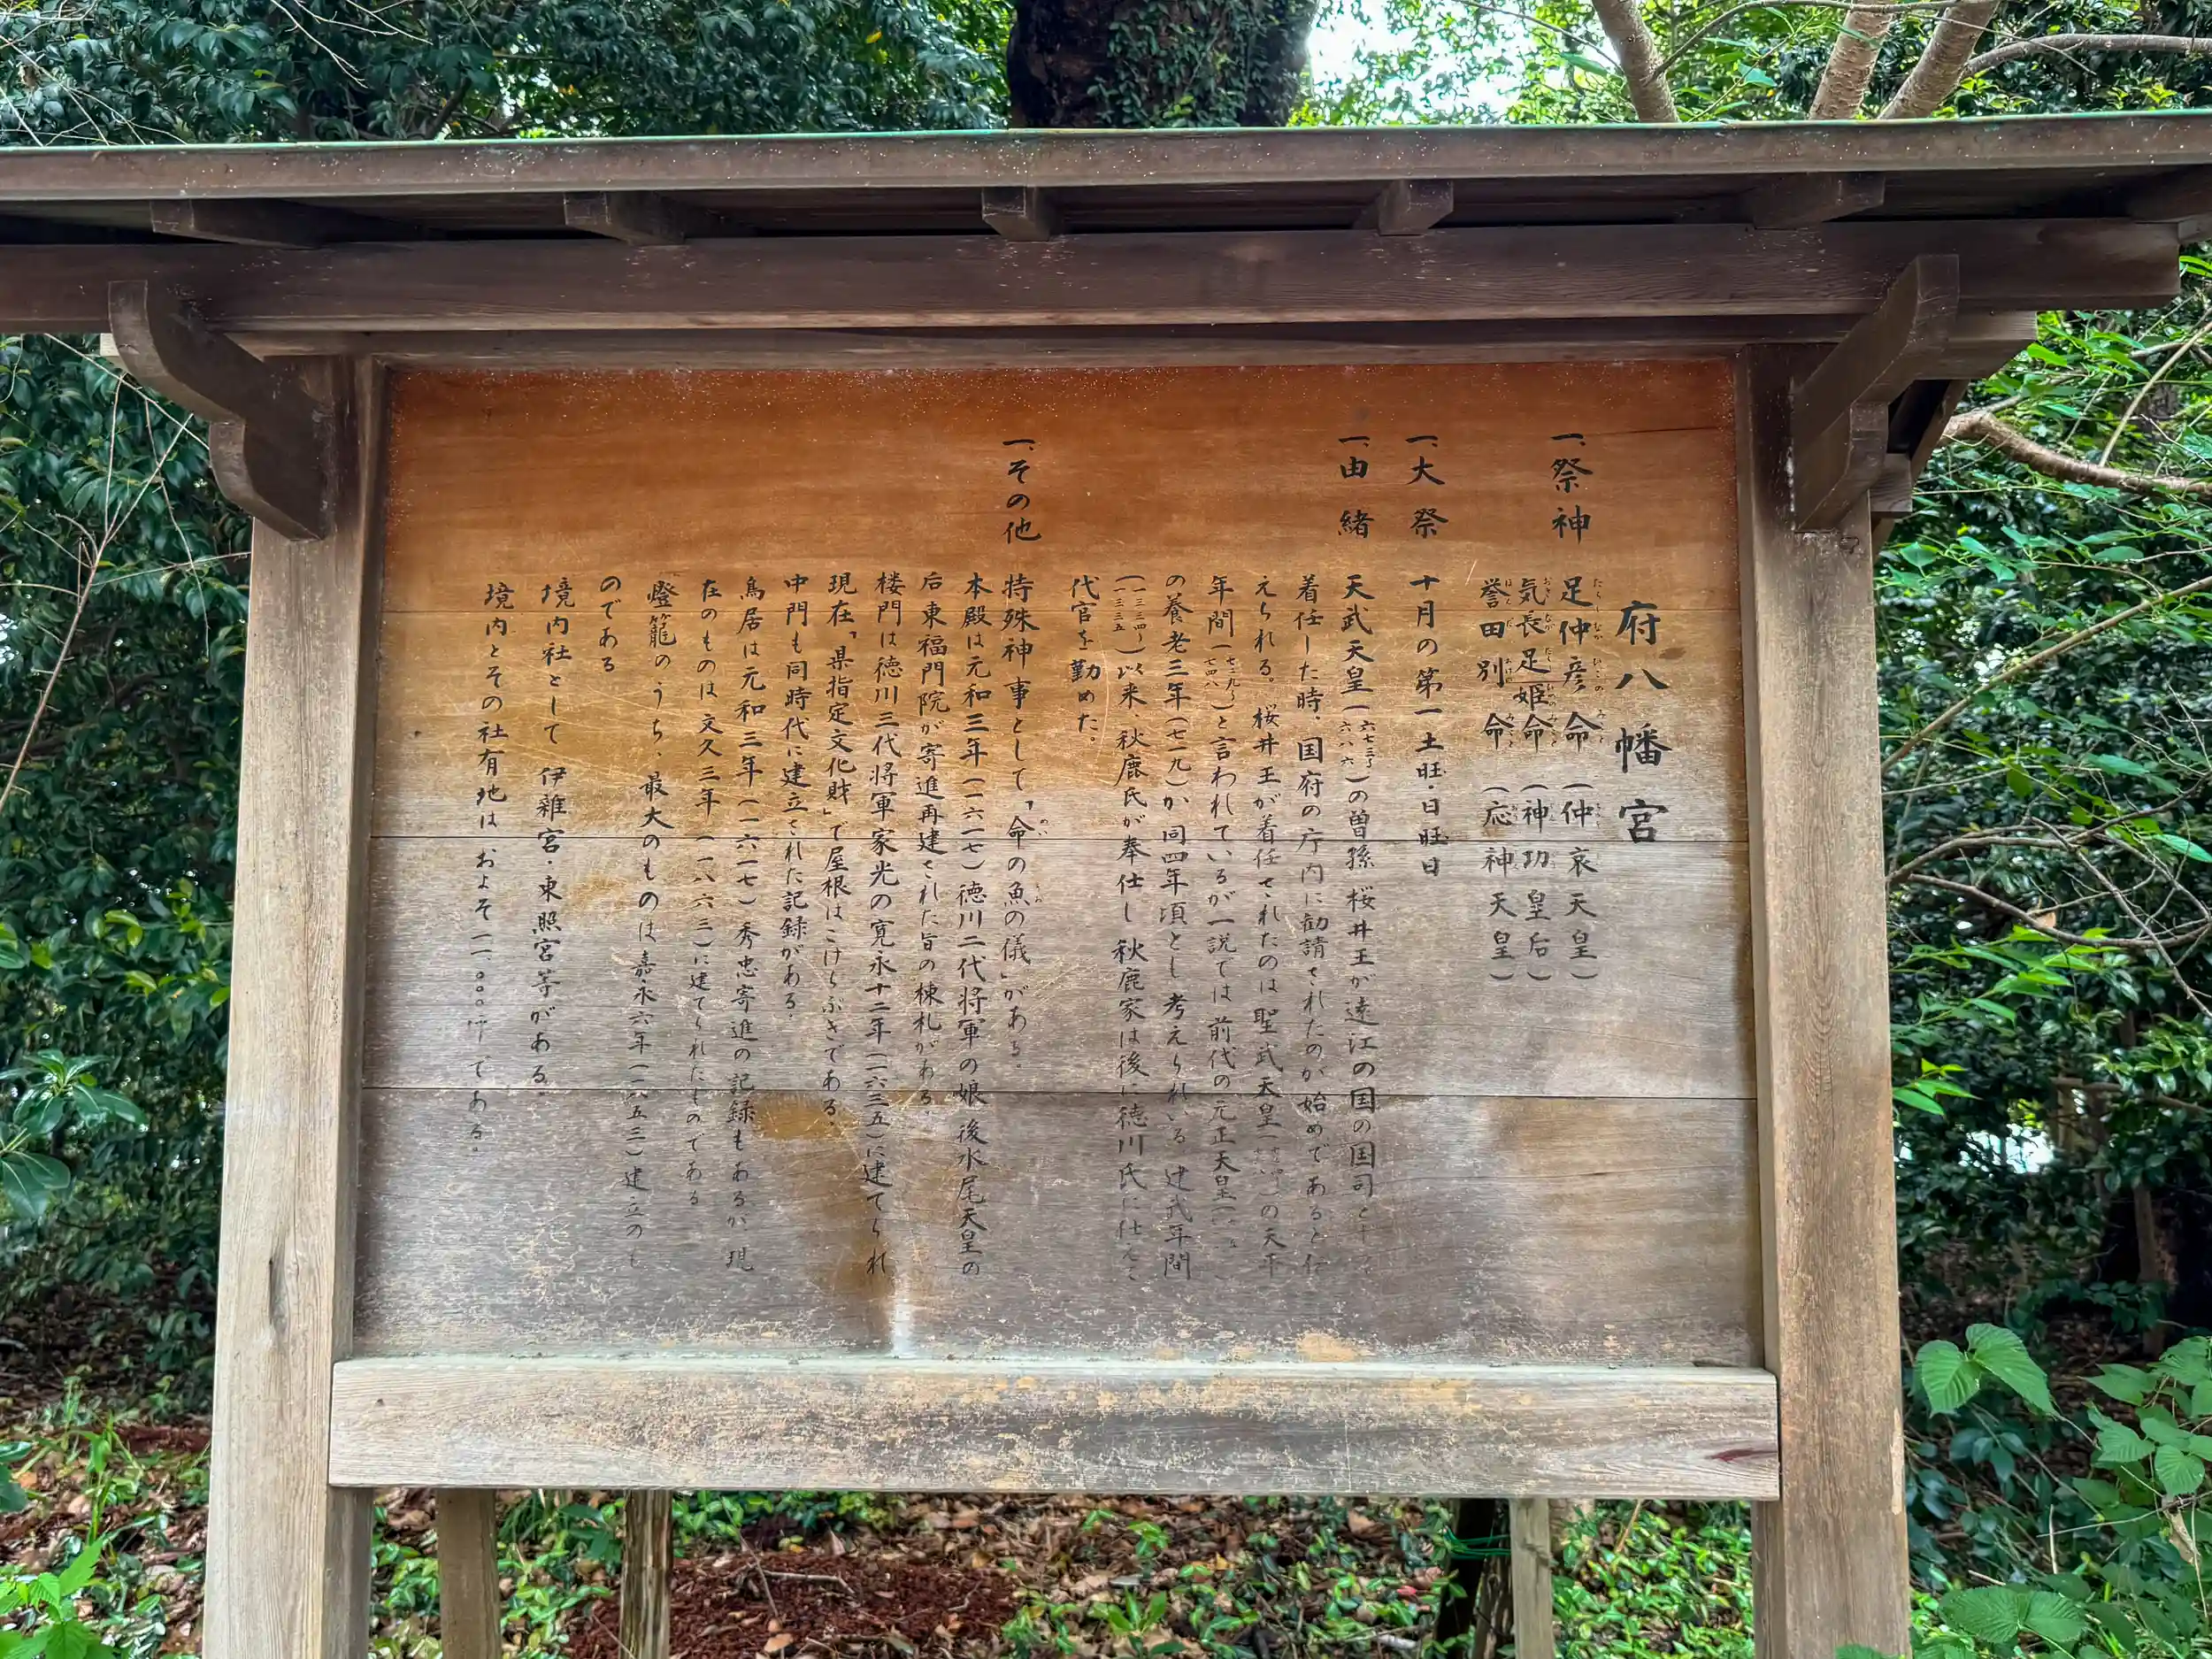 府八幡宮
一、祭神 足仲彦命（仲哀天皇）
気長足姫命（神功皇后）
誉田別命（応神天皇）
一、大祭 十月の第一土旺・日旺日
一、由緒 天武天皇（六七三〜六八六）の曽孫 桜井王が遠江の国の国司と
着任した時、国府の庁内に勧請されたのが始めであると伝
えられる。桜井王が着任されたのは聖武天皇の天平
年間（七二九〜七四八）と言われているが一説では前代の元正天皇
の養老三年（七一九）か同四年頃とし考えられいる 建武年間
（一三三四〜一三三五）以来、秋鹿氏が奉仕し 秋鹿家は後に徳川氏に仕えて
代官を勤めた。
一、その他 特殊神事として「命の魚の儀」がある。
本殿は元和三年（一六一七）徳川二代将軍の娘 後水尾天皇の
后東福門院が寄進再建された旨の棟札がある。
楼門は徳川三代将軍家光の寛永十二年（一六三五）に建てられ
現在「県指定文化財」で屋根はこけらぶきである。
中門も同時代に建立された記録がある。
鳥居は元和三年（一六一七）秀忠寄進の記録もあるが、現
在のものは文久三年（一八六三）に建てられたものである
燈籠のうち、最大のものは嘉永六年（一八五三）建立のも
のである
境内社として 伊雑宮・東照宮等がある。
境内とその社有地はおよそ一一、〇〇〇坪である。